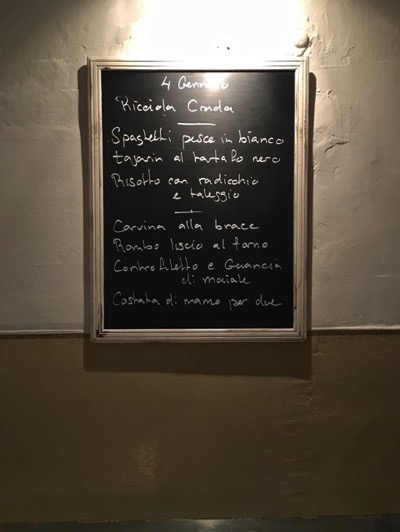 4 Gennaio
Ricciola Cruda
Spaghetti pesce in bianco
tajarin al tartufo nero
Risotto con radicchio
e taleggio
alla brace
Rombo liscio al forno
Controfiletto e Guancia
di maiale
Costata di manzo per due